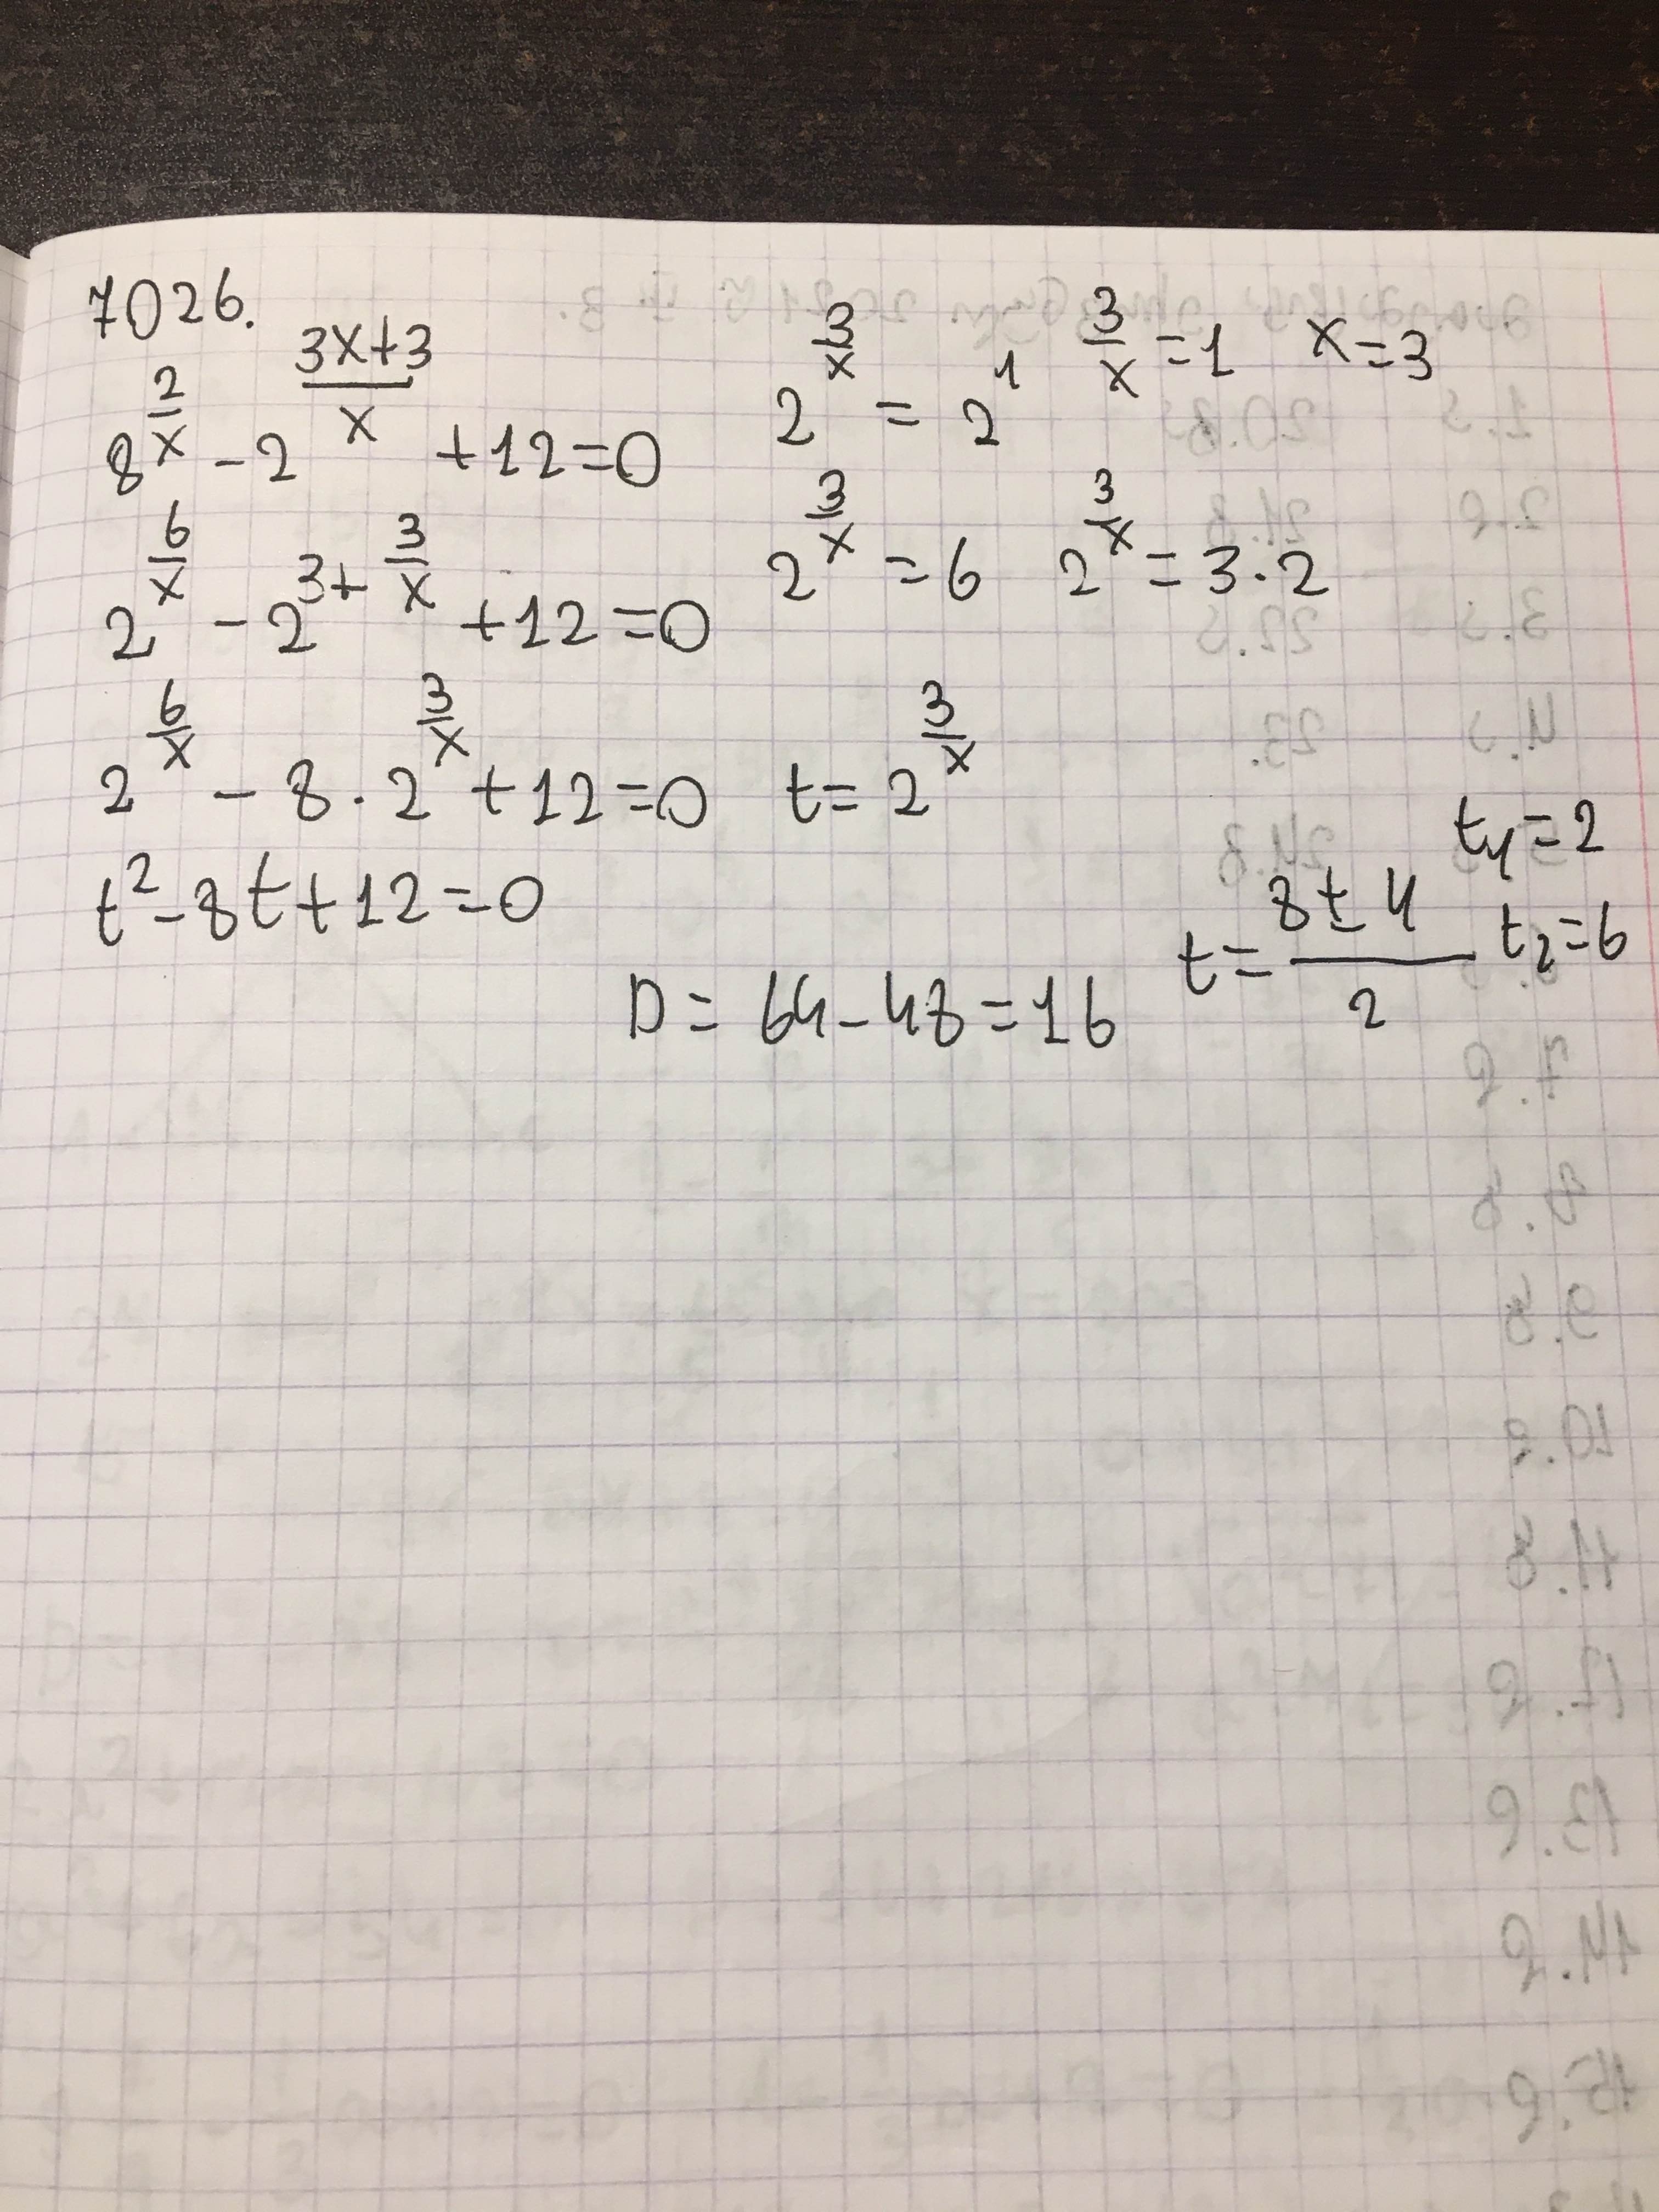 7026.
8^(2/x) - 2^((3x+3)/x) + 12 = 0
2^(6/x) - 2^(3+3/x) + 12 = 0
2^(6/x) - 8 · 2^(3/x) + 12 = 0   t = 2^(3/x)
t² - 8t + 12 = 0
D = 64 - 48 = 16
t = (8 ± 4)/2
t₁ = 2
t₂ = 6
2^(3/x) = 2^1   3/x = 1   x = 3
2^(3/x) = 6   2^(3/x) = 3 · 2